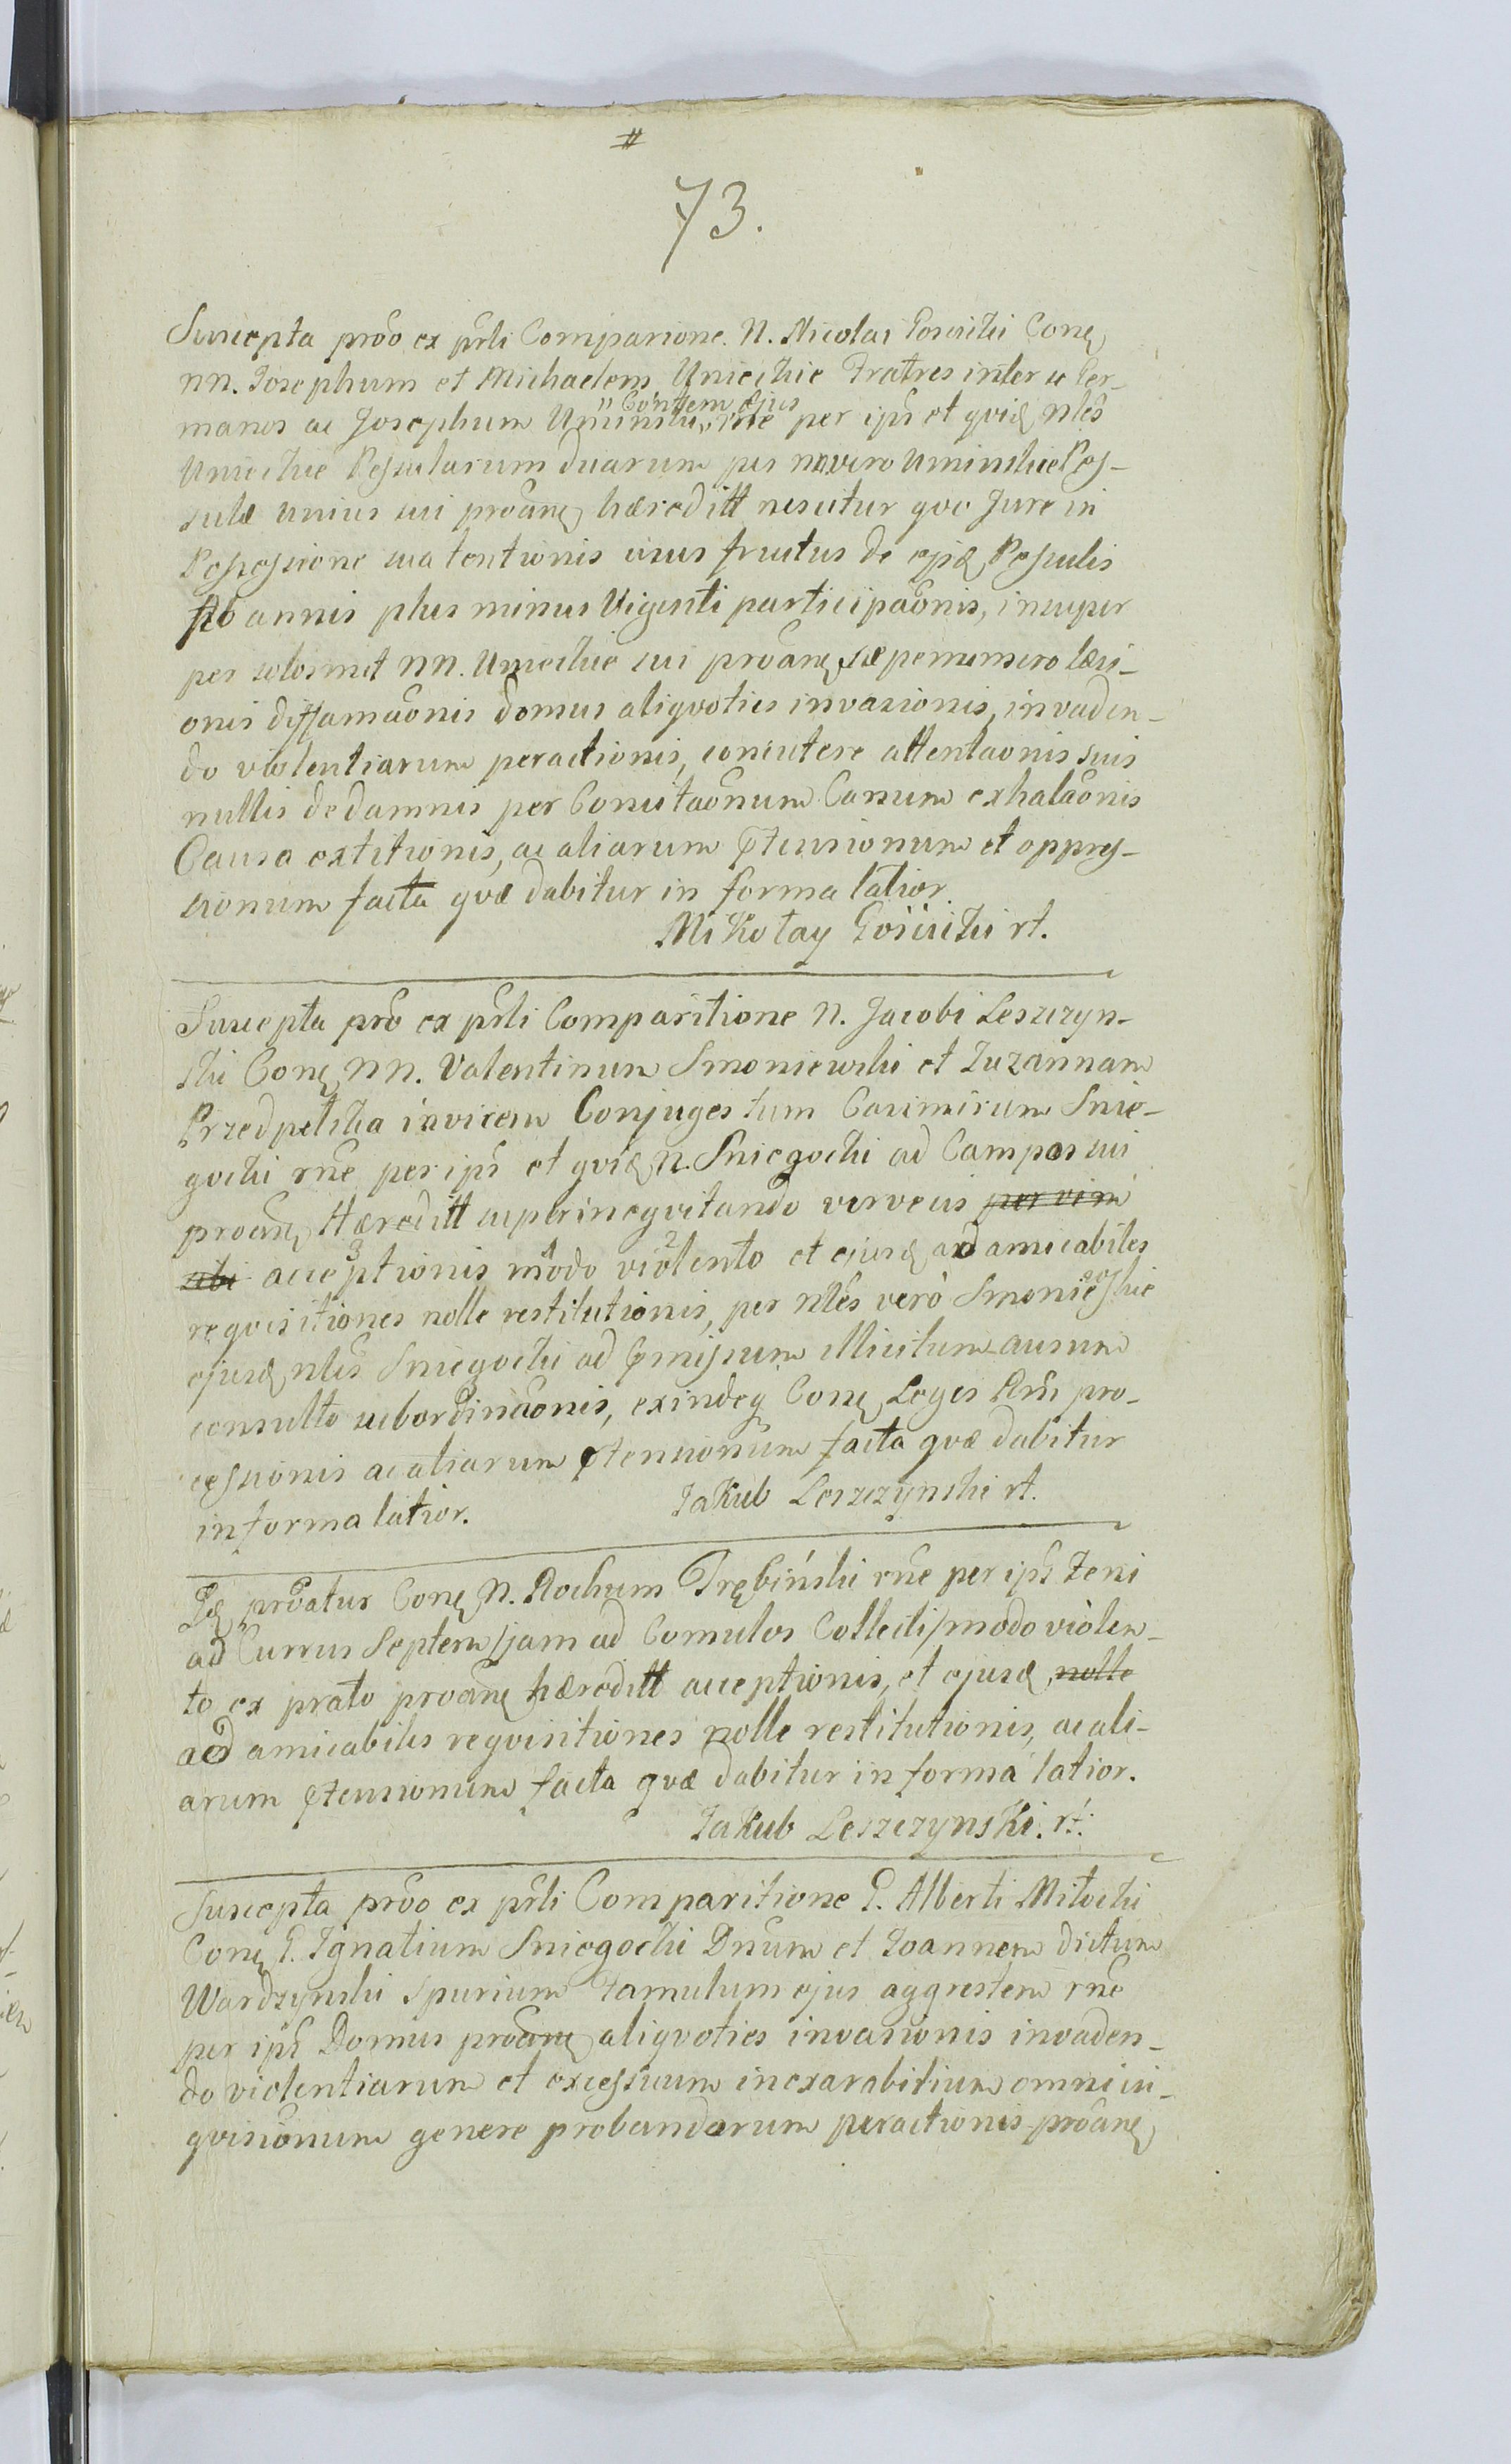 #
73.
Suscepta prõo ex pñli Comparione. N. Nicolai Gościcki Conẹ
NN. Josephum et Michaelem Umieckie Fratres inter se Ger-
manos ac Josephum Uminski " Contem ejus rñe per ips et qvidẹ nlẽs
Umieckie Pessularum duarum per N. vero Uminskie Pes-
sulæ unius sui proãnẹ hæreditt nescitur qvo Jure in
Possessione sua tentionis usus fructus de ejsdẹ Pessulis
ab annis plus minus Viginti participaõnis, insuper
per solosmet NN. Umieckie sui proãnẹ sæpenumero læsi-
onis diffamaõnis domus aliqvoties invasionis, invaden-
do violentiarum peractionis, concutere attentaõnis suis
nullis de damnis per Concitaõnum Canum exhalaõnis
Causa extitionis, ac aliarum ꝑtensionum et oppres-
sionum facta qvæ dabitur in forma latior.
Mikołay Gościcki rt.
Suscepta prõo ex pñli Comparitione N. Jacobi Leszczyn-
ski Conẹ NN. Valentinum Smoniewski et Zuzannam
Przedpełska invicem Conjuges tum Casimirum Snie-
gocki rñe per ips et qvidẹ N. Sniegocki ad Campos sui
proãnẹ Hæreditt superineqvitando vervecis per vim
sibi acce³ptionis mo¹do vio²lento et ejusdẹ ad amicabiles
reqvisitiones nolle restitutionis, per nlẽs verò Smoniewskie
ejusdẹ nlis Sniegocki ad ꝑmissum illicitum ausum
consulto subordinaõnis, exindeq Conẹ Leges Rñi pro-
cessionis ac aliarum ꝑtensionum facta qvæ dabitur
in forma latior. Jakub Leszczynski rt.
Idẹ proãtur Conẹ N. Rochum Trębiński rñe per ips feni
ad Currus Septem /jam ad Comulos Collecti/ modo violen-
to ex prato proãnẹ hæreditt acceptionis, et ejusdẹ nolle
ad amicabiles reqvisitiones nolle restitutionis, ac ali-
arum ꝑtensionum facta qvæ dabitur in forma latior.
Jakub Leszczynski. rt.
Suscepta prõo ex pñli Comparitione G. Alberti Mitocki
Conẹ G. Ignatium Sniegocki Dñum et Joannem dictum
Wardzynski Spurium Famulum ejus aggrestem rñe
per ips Domus proãnẹ aliqvoties invasionis invaden-
do violentiarum et excessuum inexarabilium omni in-
qvisiõnum genere probandarum peractionis proãnẹ